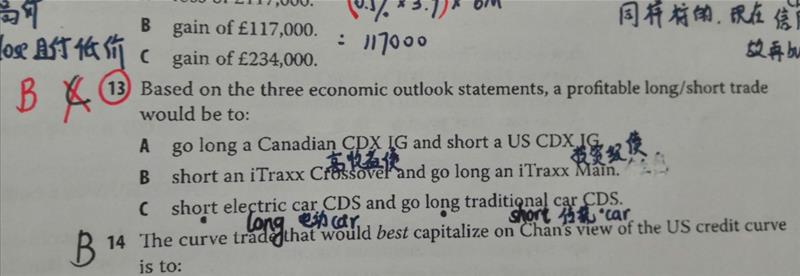 高价
B gain of £117,000.
(0.5% × 3.7) × 6M
= 117000
同样标的.现在信
lose 且付低价
C gain of £234,000.
故再bu
B C 13 Based on the three economic outlook statements, a profitable long/short trade
would be to:
A go long a Canadian CDX IG and short a US CDX IG.
高收益债 投资级债.
B short an iTraxx Crossover and go long an iTraxx Main.
C short electric car CDS and go long traditional car CDS.
long 电动car short 传统car
B 14 The curve trade that would best capitalize on Chan's view of the US credit curve
is to: